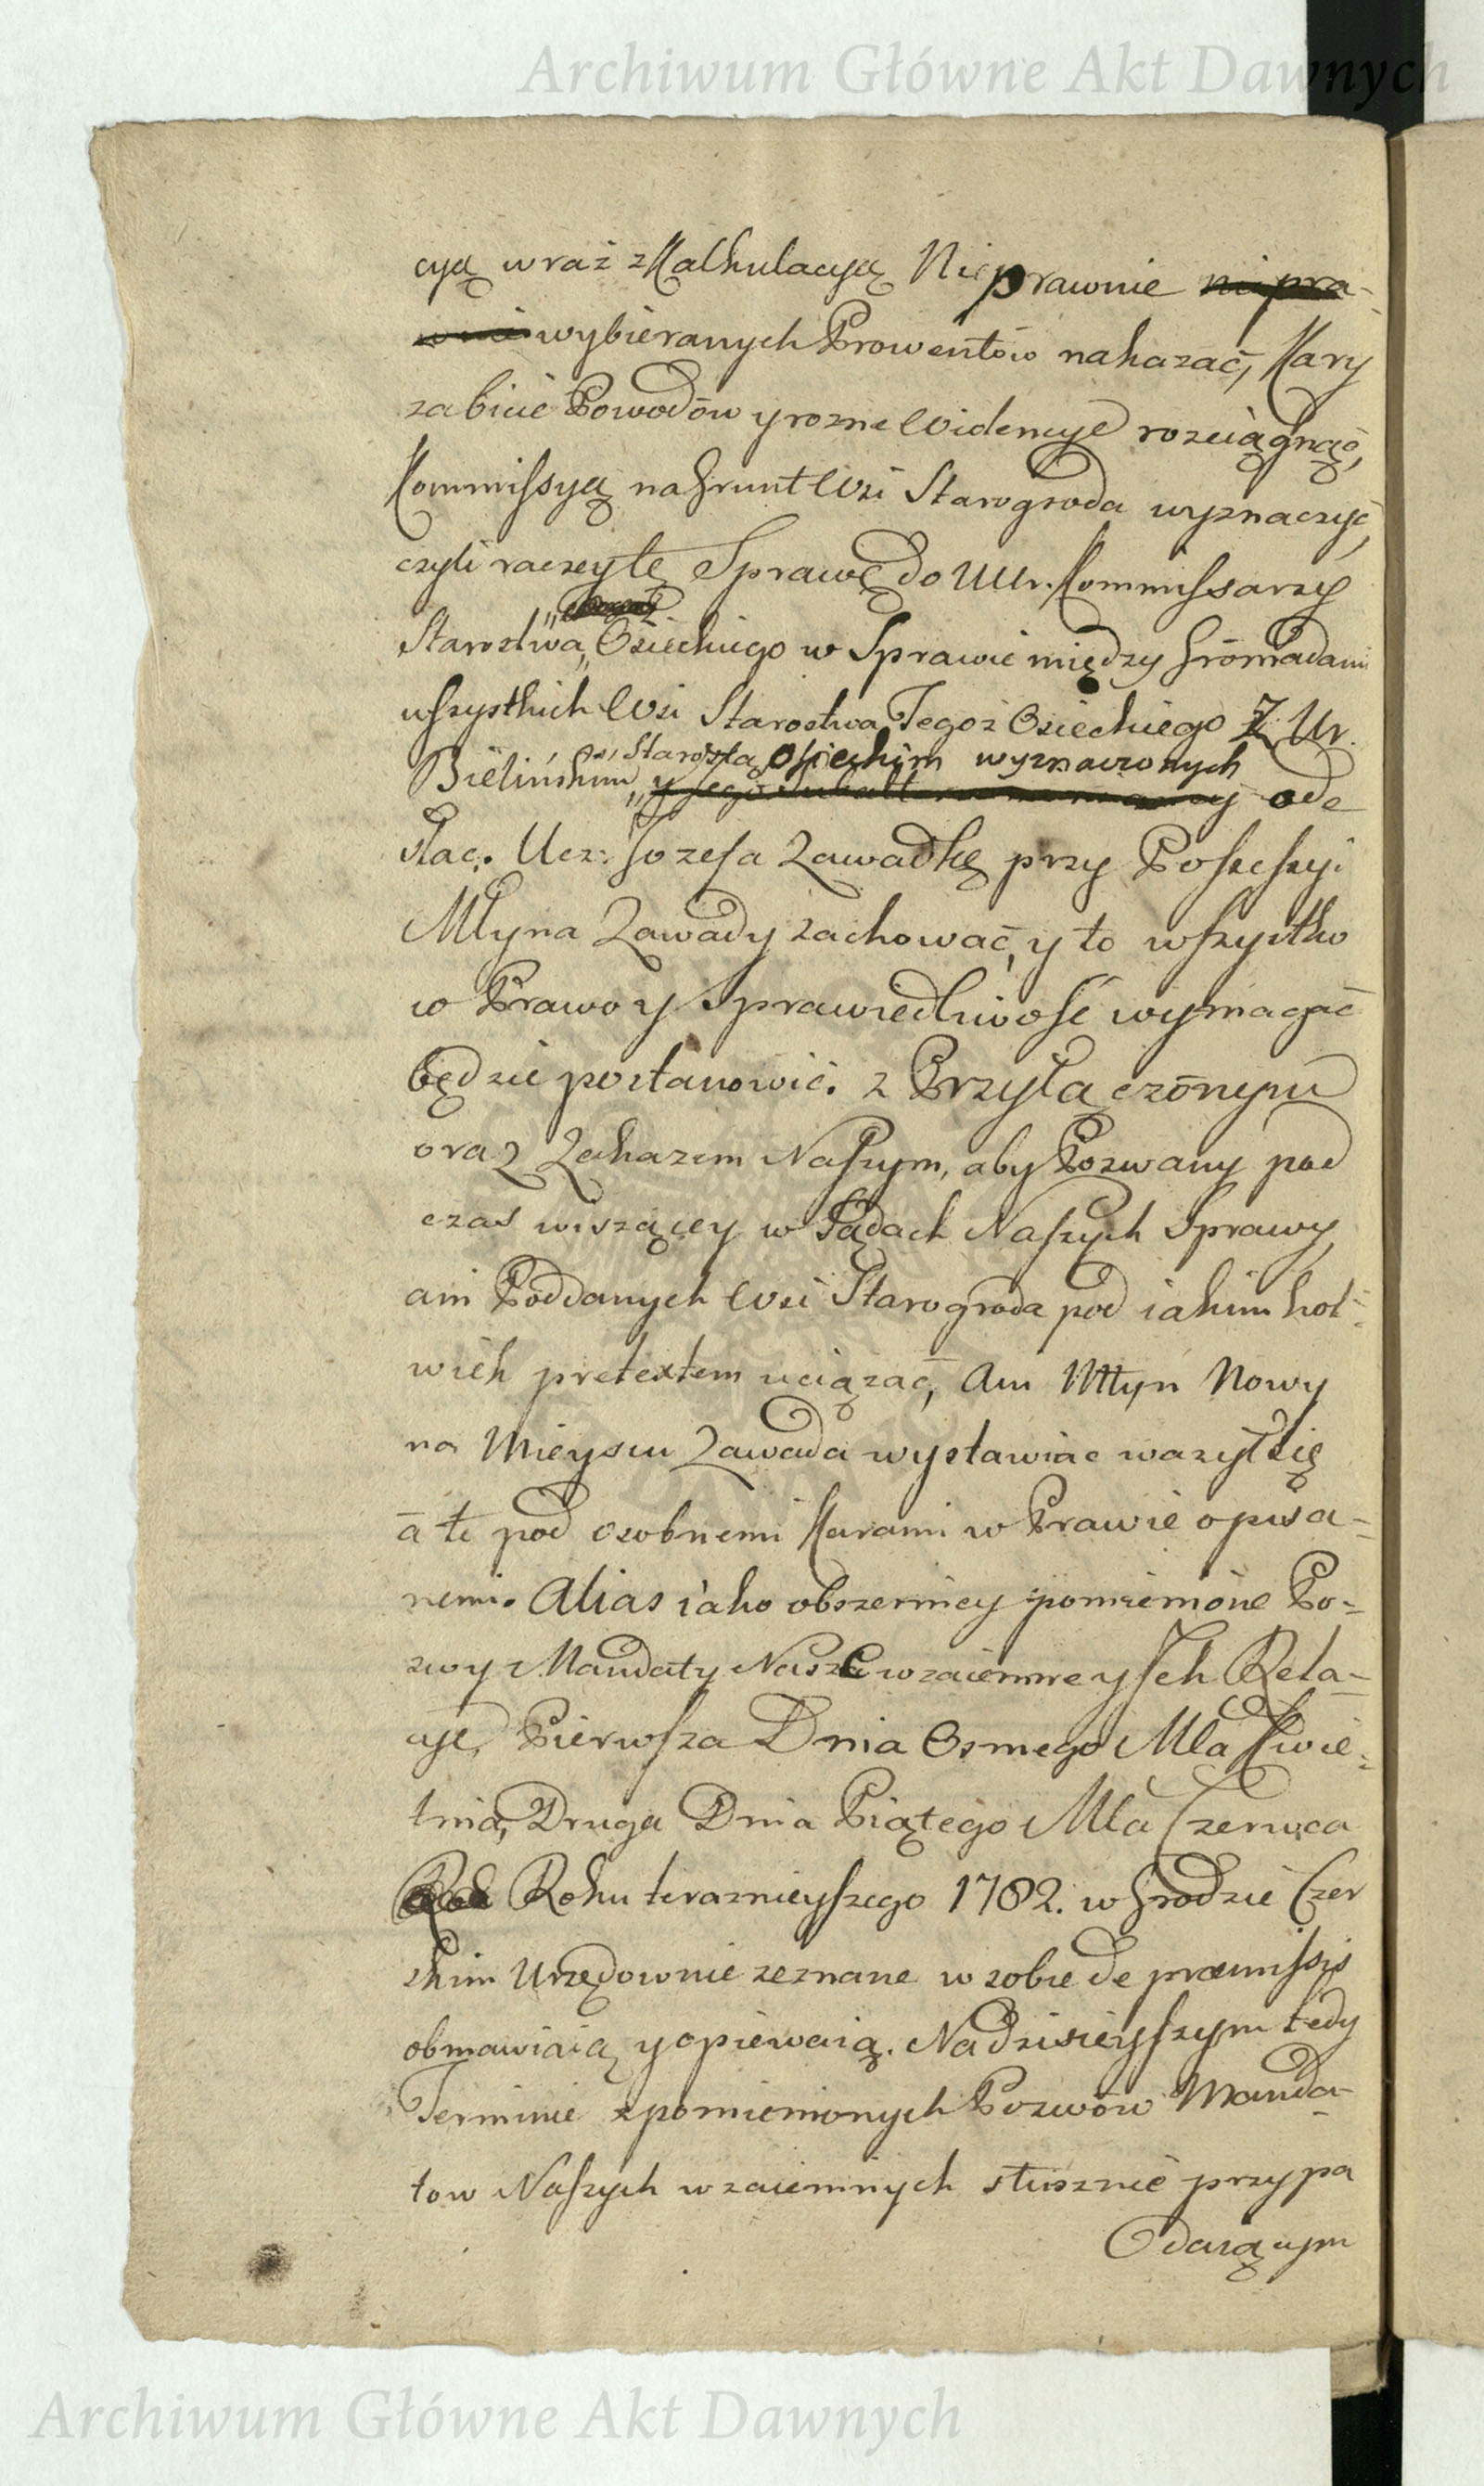 Archiwum Główne Akt Dawnych
cyą wraz z Kalkulacyą Nieprawnie niepra-
wnie wybieranych Prowentów nakazać, Kary
za bicie Powodów y rozne Widencye rozciągnąć,
Kommissyą na Grunt Wsi Starogroda wyznaczyć,
czyli raczey tę Sprawę do UUr. Kommissarzy
Starostwa Osieckiego w Sprawie między Gromadami
wszystkich Wsi Starostwa Tegoż Osieckiego z Ur.
Starostą Osieckim wyznaczonych
Bielińskim y Jego ode
słać. Ucz: Jozefa Zawadkę przy Possessyi
Młyna Zawady zachować, y to wszystko
co Prawo y Sprawiedliwość wymagać
będzie postanowić. z Przyłączonym
oraz Zakazem Naszym, aby Pozwany pod
czas wiszącey w Sądach Naszych Sprawy,
ani Poddanych Wsi Starogroda pod iakim kol=
wiek pretextem uciążać, Ani Młyn Nowy
na Mieyscu Zawada wystawiać ważył się
a to pod osobnemi Karami w Prawie opisa=
nemi. Alias iako obszerniey pomienione Po=
zwy Mandaty Nasze wzaiemne y Jch Rela-
cye, Pierwsza Dnia Osmego Mca Kwie=
tnia, Druga Dnia Piątego Mca Czerwca
Rok Roku teraznieyszego 1782. w Grodzie Czer
skim Urzędownie zeznane w sobie de præmissis
obmawiaią y opiewaią. Na dzisieyszym tedy
Terminie z pomienionych Pozwów Manda-
tow Naszych wzaiemnych słusznie przypa
daiącym
Archiwum Główne Akt Dawnych